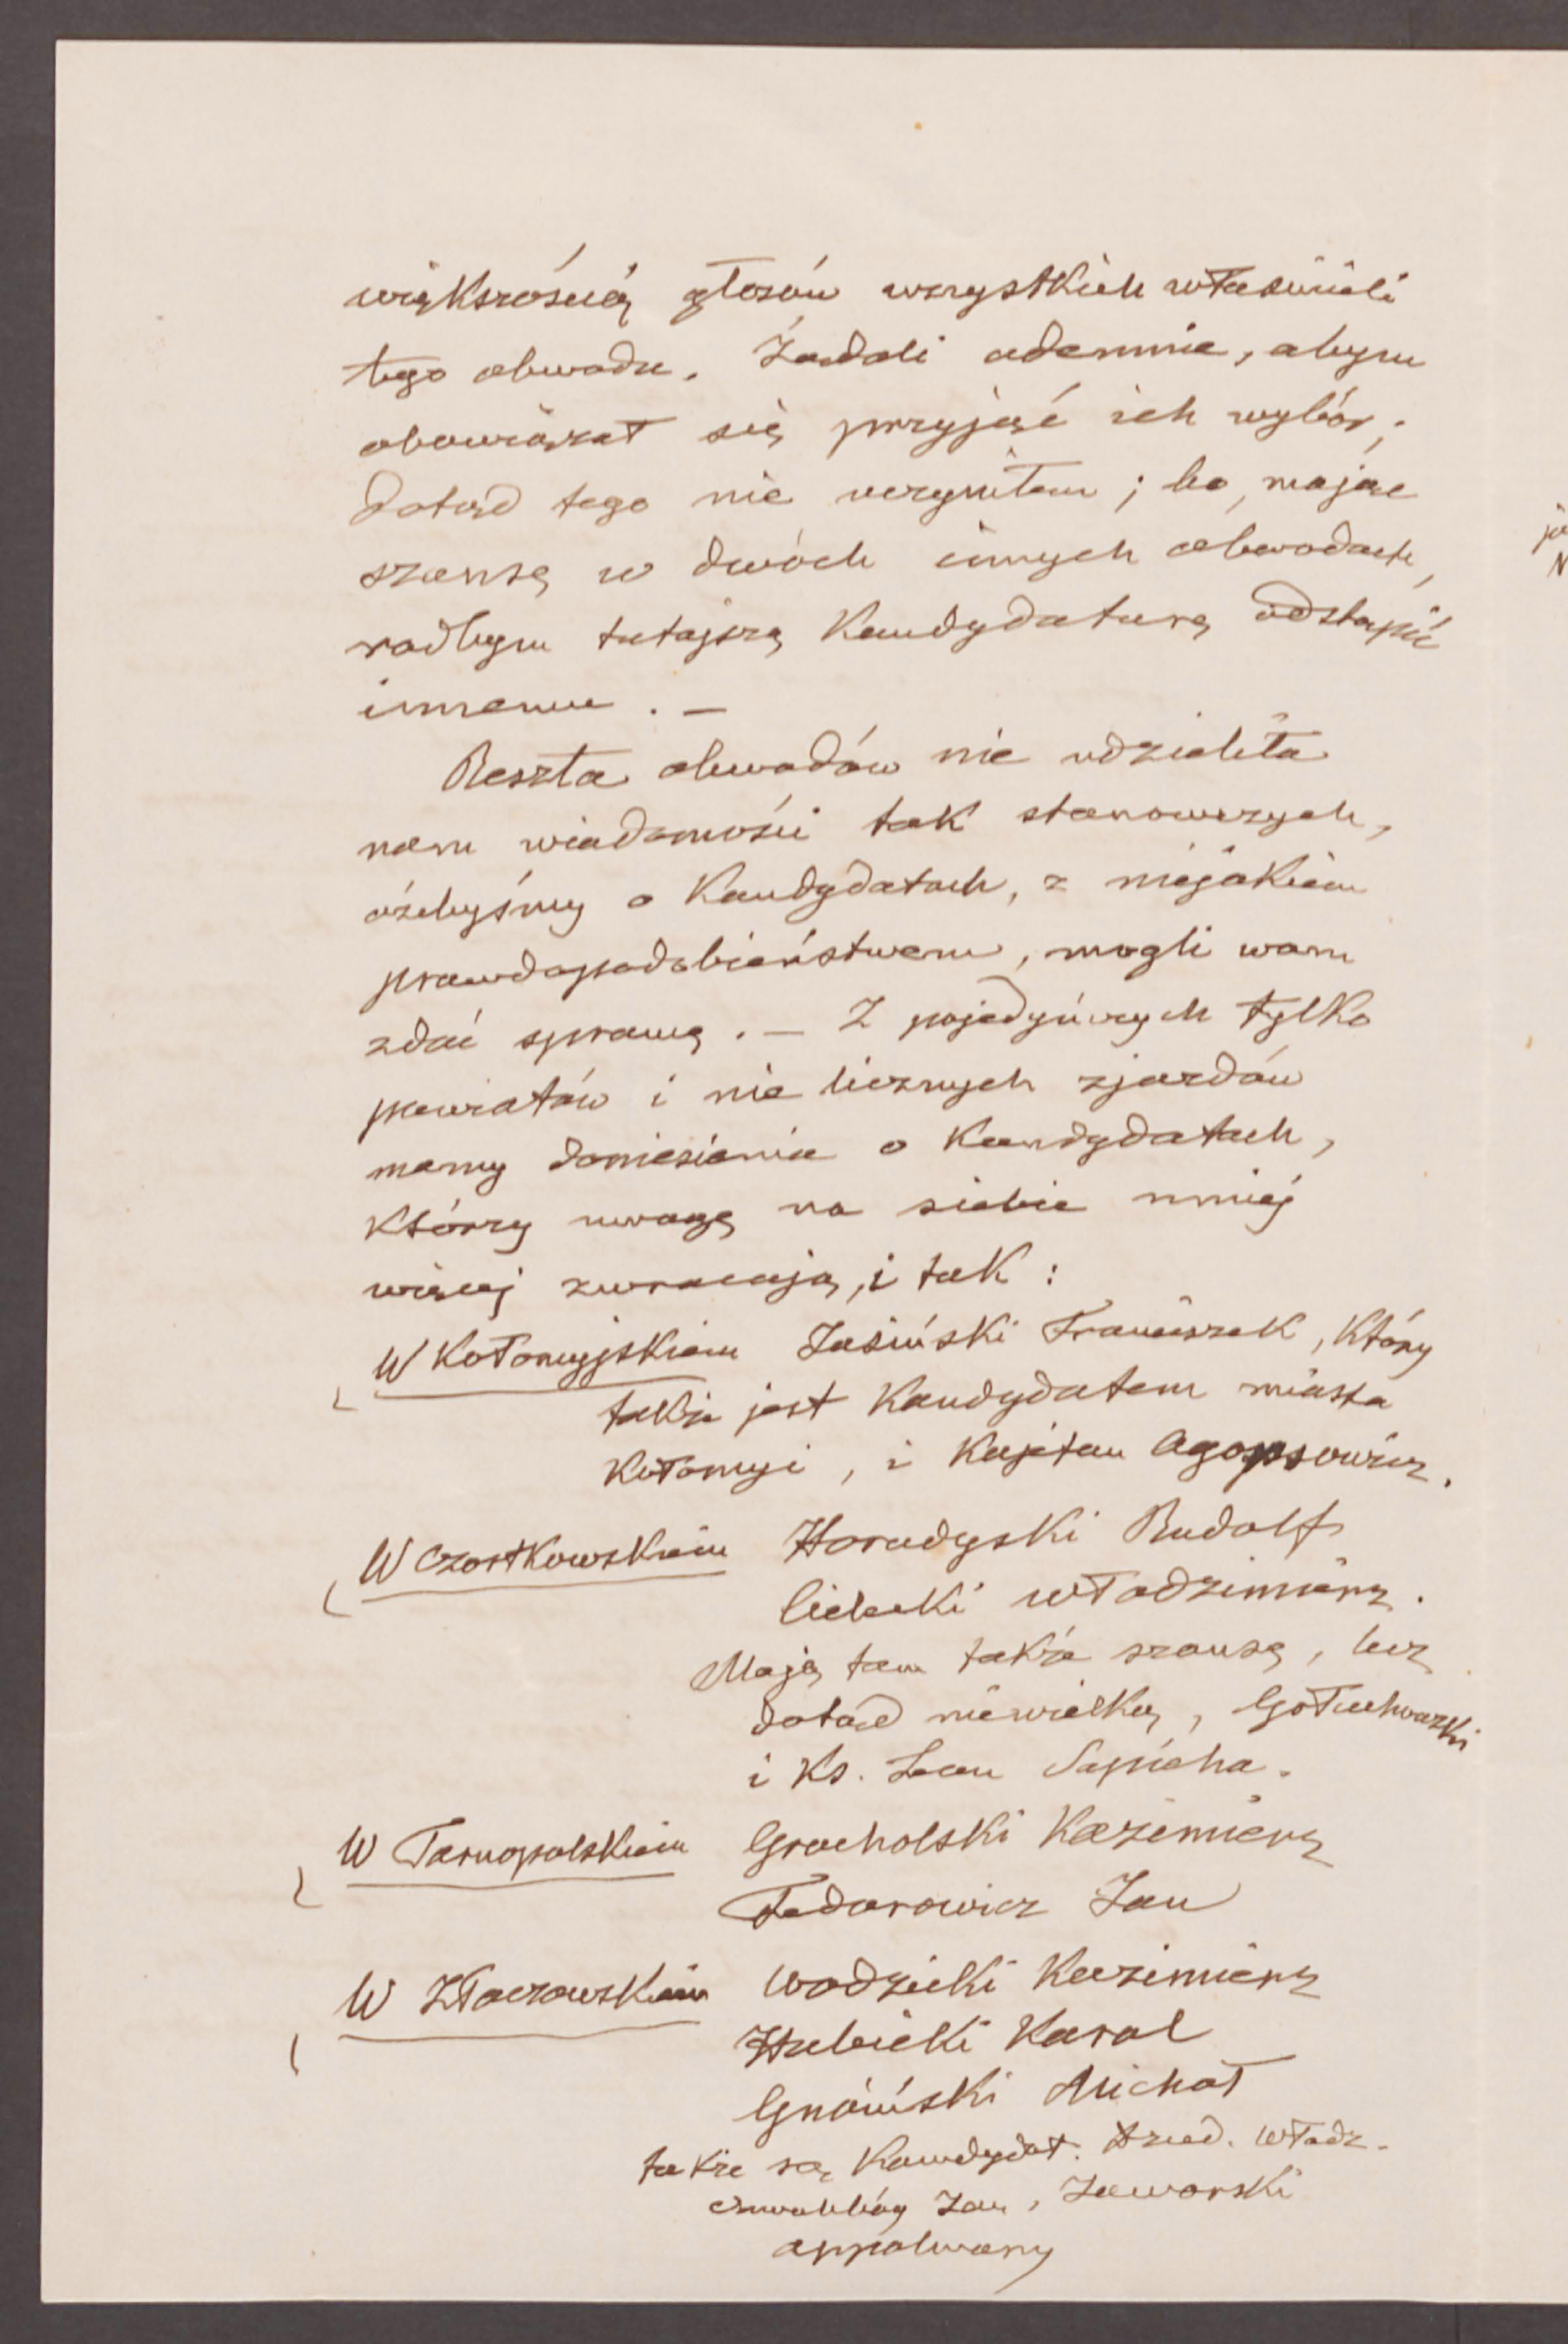 większością głosów wszystkich właścicieli
tego obwodu. Żądali odemnie, abym
obowiązał się przyjąć ich wybór;
dotąd tego nie uczyniłem; bo, mając
szansę w dwóch innych obwodach,
radbym tutajszą Kandydaturę odstąpić
innemu. —
Reszta obwodów nie udzieliła
nam wiadomości tak stanowczych,
ażebyśmy o Kandydatach, z niejakiem
prawdopodobieństwem, mogli wam
zdać sprawę. — Z pojedyńczych tylko
powiatów i nie licznych zjazdów
mamy doniesienia o Kandydatach,
Którzy uwagę na siebie mniej
więcej zwracają, i tak:
W Kołomyjskiem Jasiński Franciszek, Który
także jest Kandydatem miasta
Kołomyi, i Kajetan Agopsowicz.
W Czortkowskiem Horodyski Rudolf
Cielecki Włodzimierz.
Mają tam także szansę, lecz
dotąd niewielką, Gołuchowski
i Ks. Leon Sapieha.
W Tarnopolskiem Grocholski Kazimierz
Fedorowicz Jan
W Złoczowskiem Wodzicki Kazimierz
Hubicki Karol
Gnoiński Michał
także są Kandydat. Dzied. Włodz.
Jan, Jaworski
Apolinary